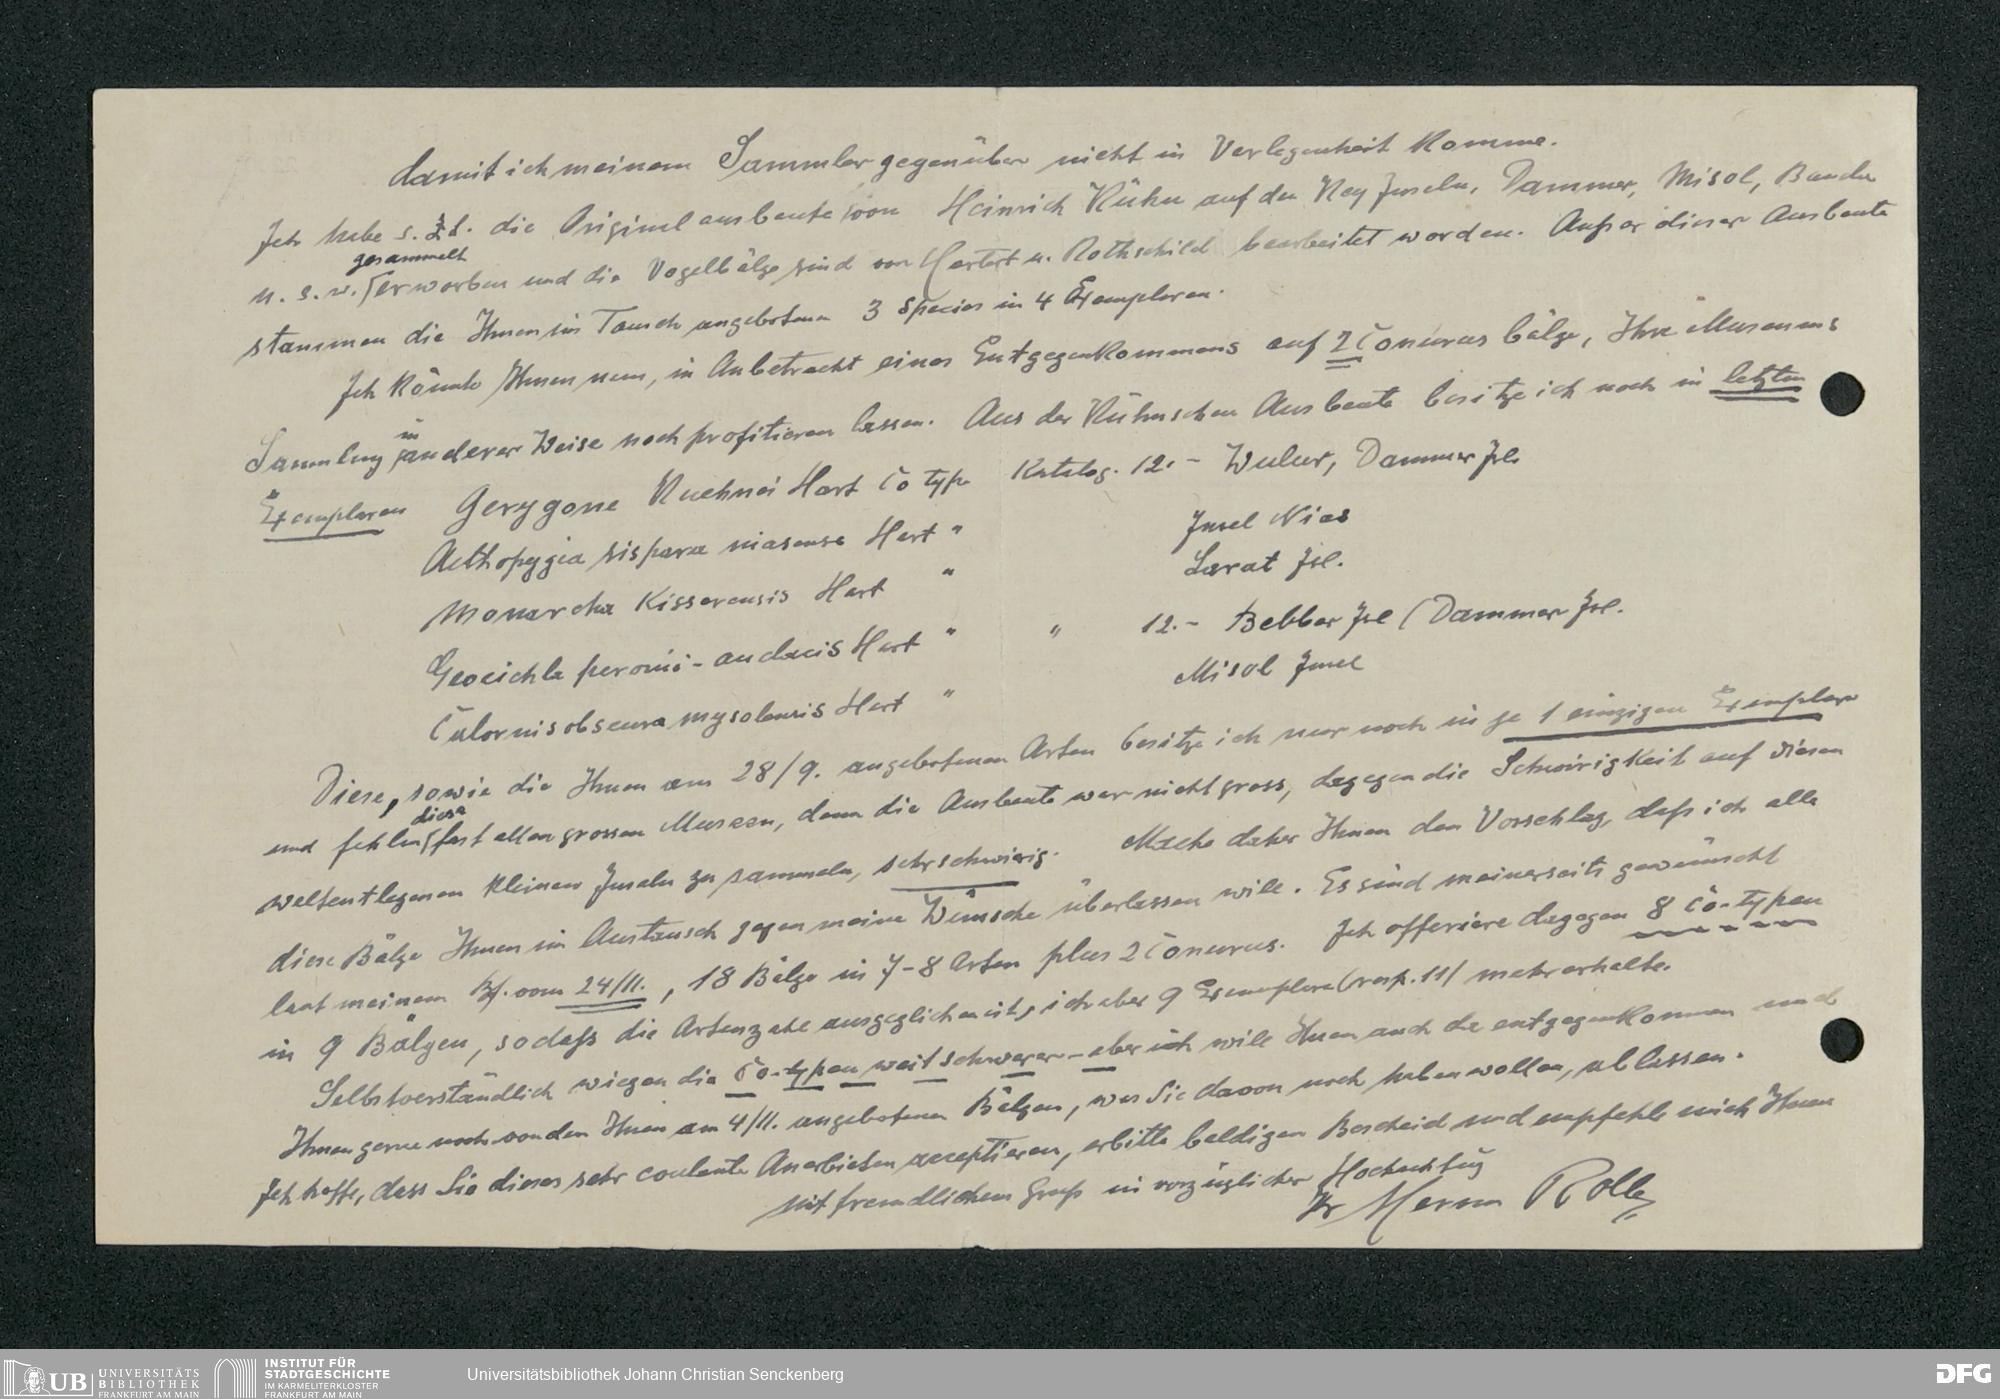 damit ich meinem Sammler gegenüber nicht in Verlegenheit komme.
Ich habe s. Zt. die Originalausbeute von Heinrich Kühn auf den Key Inseln, Dammer, Misol, Banda
gesammelt
u. s. w. erworben und die Vogelbälge sind von Hartert u. Rothschild bearbeitet worden. Außer dieser Ausbeute
stammen die Ihnen im Tausch angebotenen 3 Species in 4 Exemplaren.
Ich könnte Ihnen nun, in Anbetracht eines Entgegenkommens auf 2 Conurus bälge, Ihre Museums
Sammlung in anderer Weise noch profitieren lassen. Aus der Kühnschen Ausbeute besitze ich noch in letzten
Exemplaren Gerygone Kuehnei Hart Co type Katalog. 12.- Wulur, Dammer Jsl.
Aethopygia sispara niasense Hart " Insel Nias
Monarcha Kisserensis Hart " Larat Jsl.
Geocichla peronii-audacis Hart " " 12.- Bebber Jsl (Dammer Jsl.
Calornis obscura mysolensis Hart " Misol Insel
Diese, sowie die Ihnen am 28/9. angebotenen Arten besitze ich nur noch in je 1 einzigen Exemplar
diese
und fehlen fast allen grossen Museen, denn die Ausbeute war nicht gross, dagegen die Schwirigkeit auf diesen
weltentlegenen kleinen Inseln zu sammeln, sehr schwierig. Mache daher Ihnen den Vorschlag, daß ich alle
diese Bälge Ihnen im Austausch gegen meine Wünsche überlassen will. Es sind meinerseits gewünscht
laut meinem Bf. vom 24/11., 18 Bälge in 7-8 Arten plus 2 Conurus. Ich offeriere dagegen 8 Co-typen
in 9 Bälgen, sodaß die Artenzahl ausgeglichen ist, ich aber 9 Exemplare (resp. 11) mehr erhalte.
Selbstverständlich wiegen die Co-typen weit schwerer - aber ich will Ihnen auch da entgegenkommen und
Ihnen gerne noch von den Ihnen am 4/11. angebotenen Bälgen, was Sie davon noch haben wollen, ablassen.
Ich hoffe, dass Sie dieses sehr coulante Anerbieten acceptieren, erbitte baldigen Bescheid und empfehle mich Ihnen
mit freundlichem Gruß in vorzüglicher Hochachtung
Ihr Herm Rolle
UB UNIVERSITÄTS
BIBLIOTHEK
FRANKFURT AM MAIN
INSTITUT FÜR
STADTGESCHICHTE
IM KARMELITERKLOSTER
FRANKFURT AM MAIN
Universitätsbibliothek Johann Christian Senckenberg
DFG